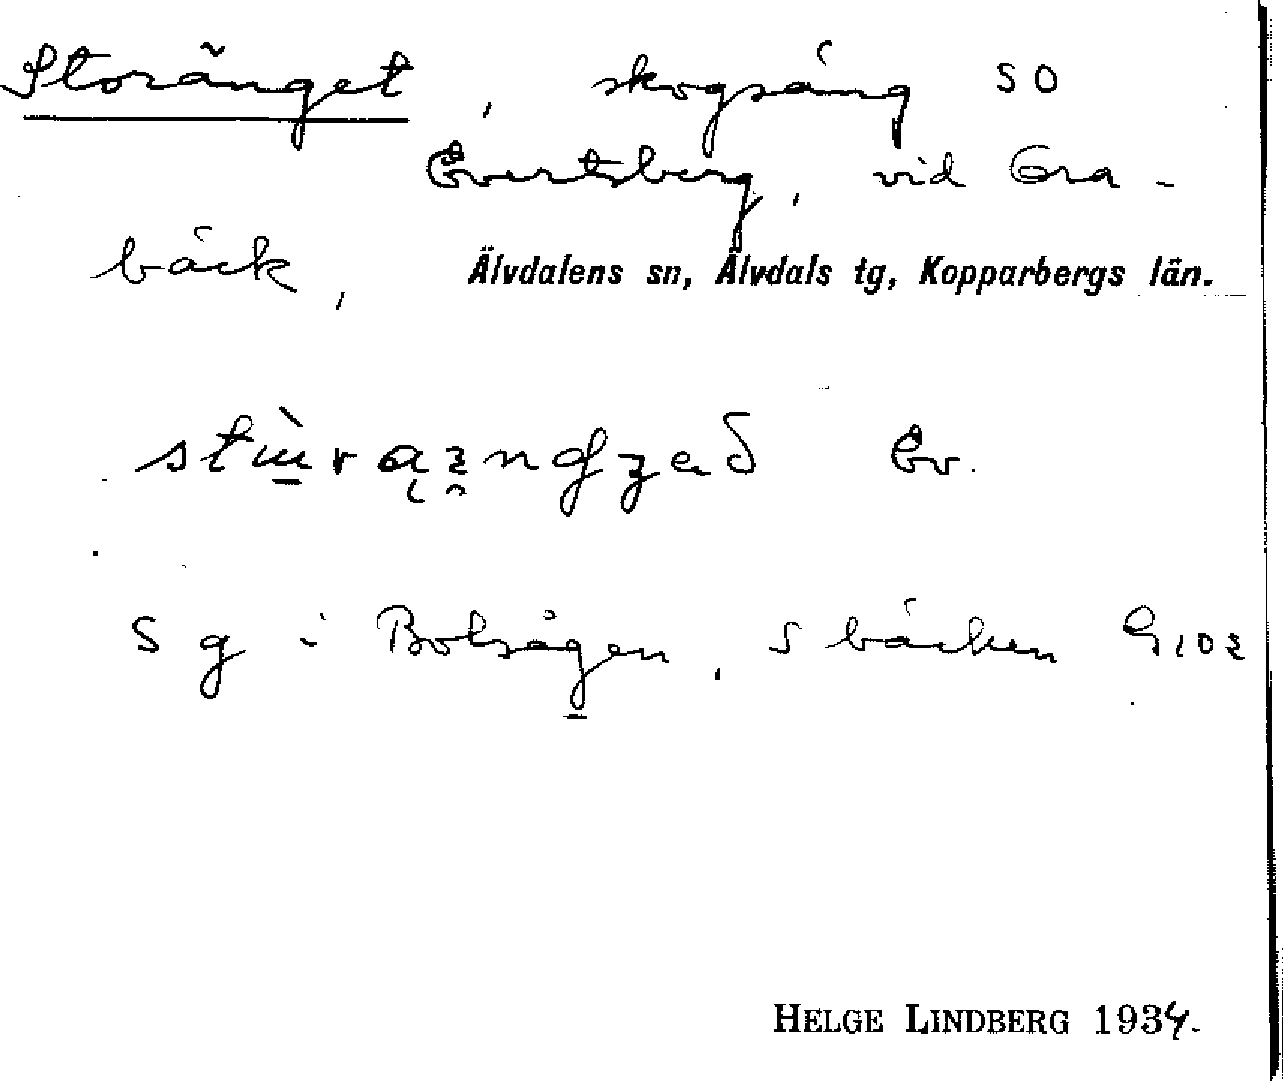 Storänget, skogsäng SO
Evertsberg, vid Gra-
bäck,
Älvdalens sn, Älvdals tg, Kopparbergs län.
Ev.
S g i Bolsågen, S bäcken G102
HELGE LINDBERG 1934.